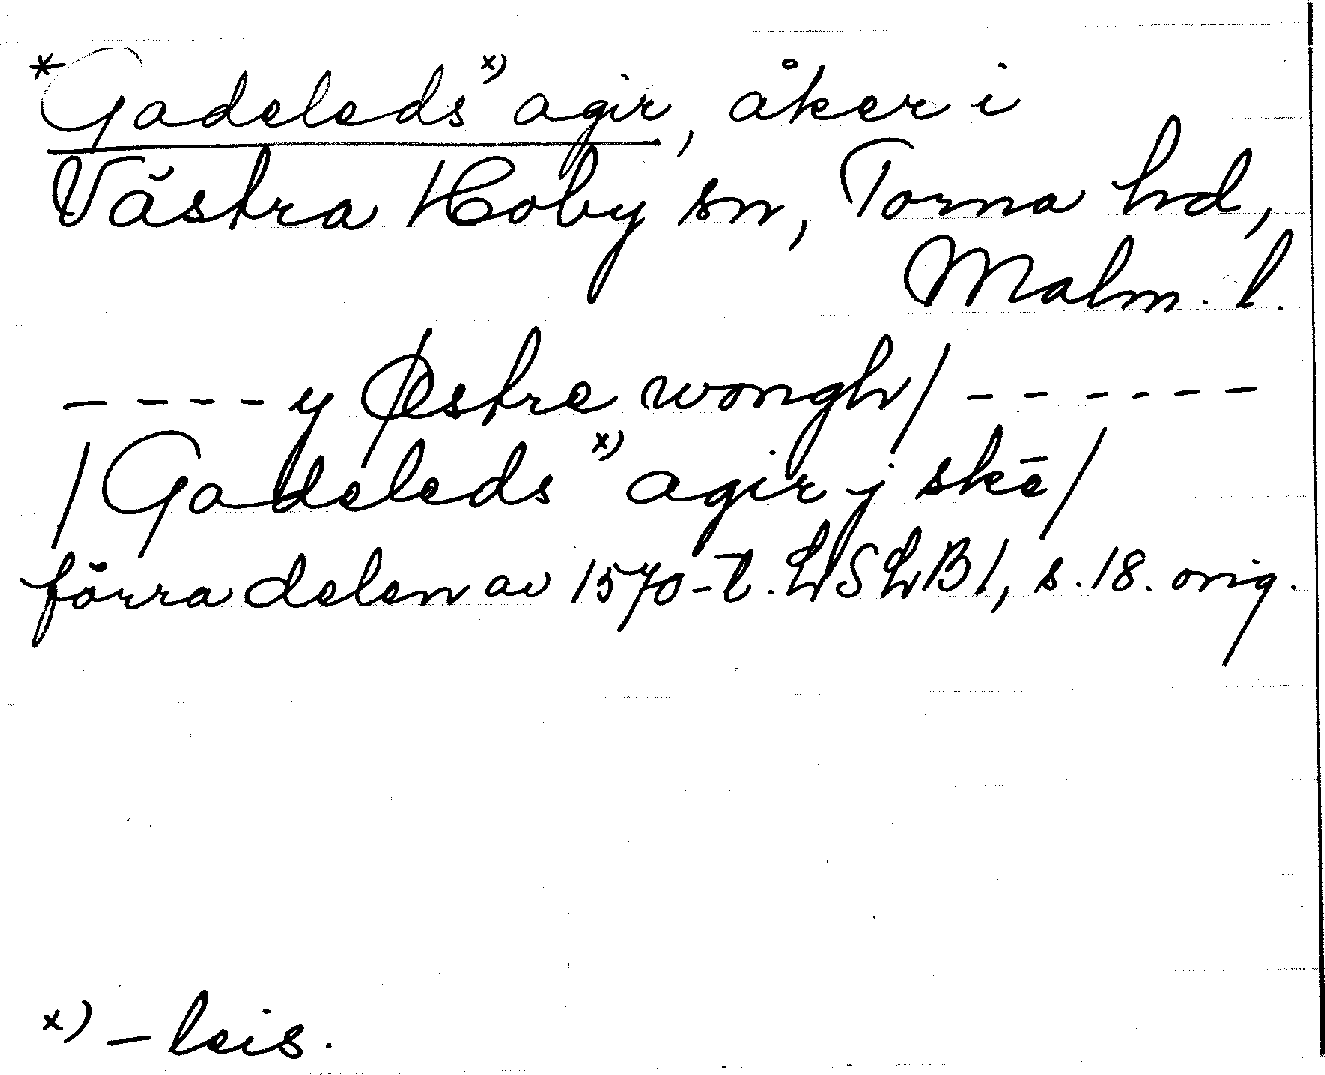 *Gadeleds x) agir, åker i
Västra Hoby sn, Torna hd,
Malm. l.
----y Østre wongh/ ------
/Gadeleds x) agir j skē/
förra delen av 1570-t. LSLB1, s. 18. orig.
x) -leis.